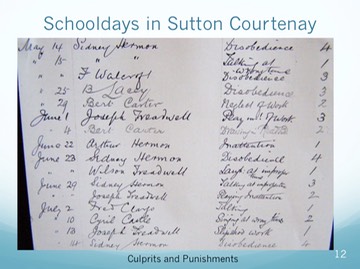 Schooldays in Sutton Courtenay
May 14 Sidney Hermon Disobedience 4
" 15 " Talking at wrong time 1
" " F Walcroft Disobedience 3
" 25 B Lacey Disobedience 3
" 29 Bert Carter Neglect of Work 2
June 1 Joseph Treadwell Play in! Work 3
" 4 Bert Carter 2
June 22 Arthur Hermon Inattention 1
June 23 Sidney Hermon Disobedience 4
" " Wilson Treadwell 1
June 29 Sidney Hermon Talking at 3
" " Joseph Treadwell Playing Inattention 2
July 2 Fred Talking
" 10 Cyril Castle at wrong time 2
" 13 Joseph Treadwell work 1
Sidney Hermon Disobedience 4
Culprits and Punishments
12